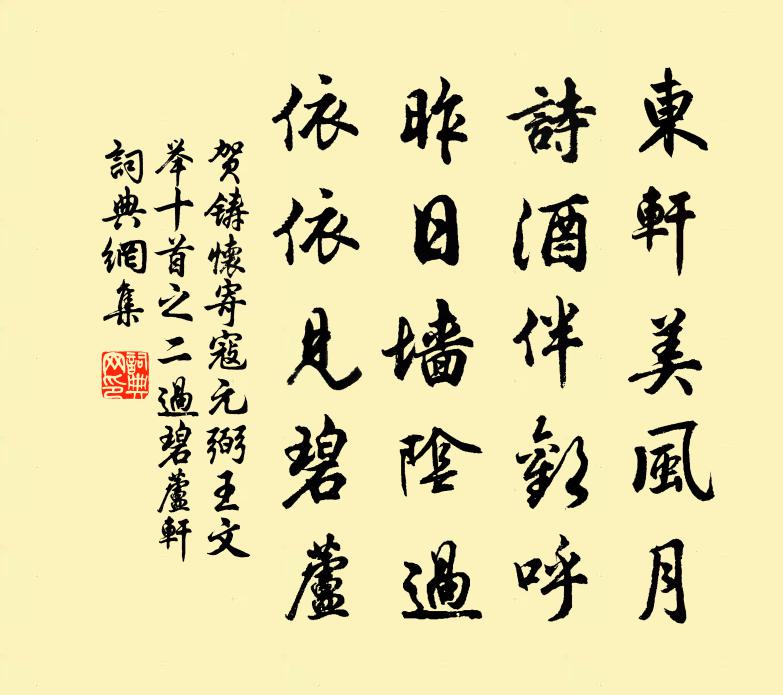 東軒美風月
詩酒伴歡呼
昨日墻陰過
依依見碧蘆
賀鑄懷寄寇元弼王文
举十首之二過碧蘆軒
詞典網集
詞典網印